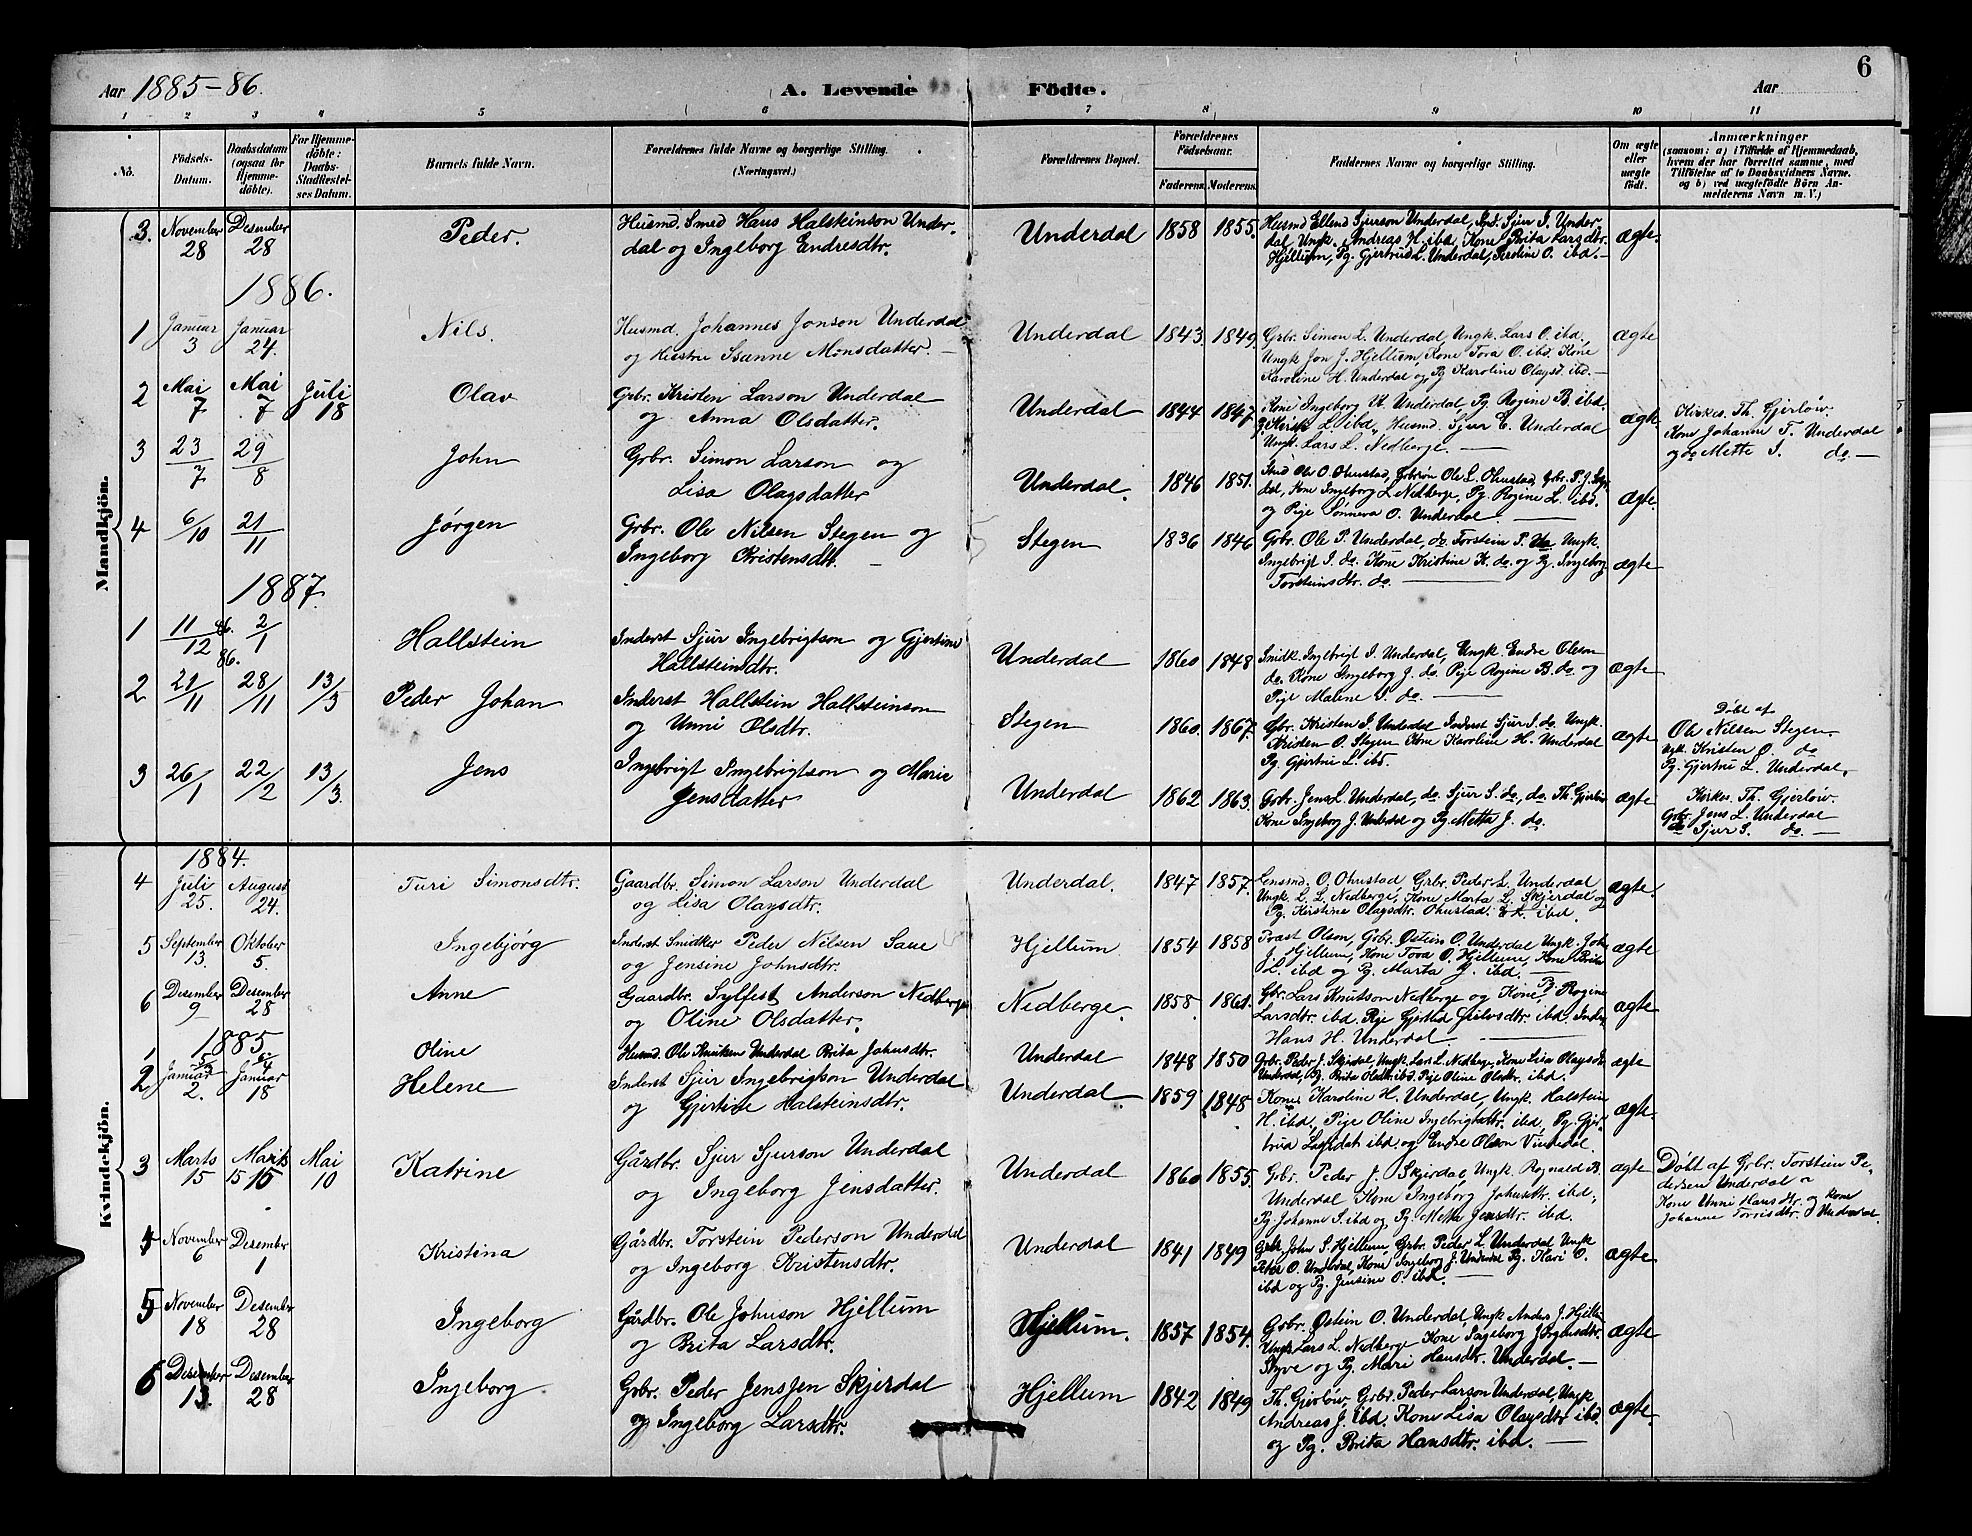 6
Aar 1885-86.
A. Levende Födte.
Aar
1 2 3 4 5 6 7 8 9 10 11
No.
Födsels-
Datum.
Daabsdatum
(ogsaa for
Hjemme-
döbte).
For Hjemme-
döbte:
Daabs-
Stadfæstel-
ses Datum.
Barnets fulde Navn.
Forældrenes fulde Navne og borgerlige Stilling.
(Næringsvei.)
Forældrenes Bopæl.
Forældrenes
Födselsaar.
Faderens. Moderens.
Faddernes Navne og borgerlige Stilling.
Om ægte
eller
uægte
födt.
Anmærkninger
(saasom: a) i Tilfælde af Hjemmedaab,
hvem der har forrettet samme, med
Tilföielse af to Daabsvidners Navne,
og b) ved uægtefödte Börn An-
melderens Navn m. V.)
Mandkjön.
3. November 28 Desember 28 Peder.
Husmd. Smed Hans Halstinson Under-
dal og Ingeborg Endresdtr.
Underdal 1858 1855.
Husmd Ellend Sjurson Underdal, Sjur J. Under
dal, Ungk. Andreas H. ibd, Kone Brita Larsdtr.
Hjellum, Pg. Gjertrud L. Underdal, O. ibd.
ægte.
1886.
1 Januar 3 Januar 24. Nils.
Husmd. Johannes Jonson Underdal
og Hustru Susanne Monsdatter.
Underdal 1843. 1849.
Grbr. Simon L. Underdal, Ungk. Lars O. ibd,
Ungk Jon J. Hjellum, Kone Tora O. ibd. Kone
Karoline H. Underdal og Pg Karoline Olagsd. ibd.
ægte
2 Mai 7 Mai 7 Juli 18 Olav
Grbr. Kristen Larson Underdal
og Anna Olsdatter.
Underdal 1844 1847.
Kone Ingeborg H. Underdal, Pg. Rogine B. ibd.
L ibd, Husmd. Sjur E. Underdal
Ungk. Lars L. Nedberge.
ægte
Kirkes. Th. Gjerløw.
Kone Johanne T. Underdal
og do Mette J. do
3 23/7 29/8 John
Grbr. Simon Larson og
Lisa Olagsdatter
Underdal. 1846 1851.
Stud Ole O. Ohnstad, Grbrsøn Ole L. Ohnstad, Grbr. P. J. Skjer
dal, Kone Ingeborg L Nedberge, Pg. Rogine L. ibd.
og Pige Sønneva O. Underdal.
ægte.
4 6/10 21/11 Jørgen
Grbr. Ole Nilsen Stegen og
Ingeborg Kristensdtr.
Stegen 1836 1846
Grbr. Ole P. Underdal, do. Torstein P. do Ungk.
Ingebrigt I. do. Kone Kristine K. do og Pg. Ingeborg
Torsteinsdtr. do.
ægte
1887.
1 11/12 86. 2/1 Hallstein
Inderst Sjur Ingebrigtson og Gjertine
Hallsteinsdtr.
Underdal 1860 1848
Smidk. Ingebrigt I. Underdal, Ungk. Endre Olson
do. Kone Ingeborg J. do. Pige Rogine B. do og
Pige Malene S. do.
ægte
2 86. 21/11 28/11 13/3 Peder Johan
Inderst Hallstein Hallsteinson
og Unni Olsdtr.
Stegen 1860. 1867.
Grbr. Kristen I. Underdal Inderst Sjur I. do. Ungk.
Kristen O. Stegen Kone Karoline H. Underdal
Pg. Gjertrui L. ibd.
ægte
Døbt af
Ole Nilsen Stegen.
Ungk. Kristen O. do
Pg. Gjertrui L. Underdal.
3 26/1 22/2 13/3. Jens
Ingebrigt Ingebrigtson og Marie
Jensdatter
Underdal 1862 1863.
Grbr. Jens L. Underdal, do. Sjur S. do, do. Th. Gjerløw
Kone Ingeborg J. Underdal og Pg. Metta J. do.
ægte
Kirkes. Th. Gjerløw.
Grbr. Jens L. Underdal
do Sjur S. do.
Kvindekjön.
1884.
4 Juli 25. August 24. Turi Simonsdtr.
Gaardbr. Simon Larson Underdal
og Lisa Olagsdtr.
Underdal. 1847 1857.
Lensmd. O. Ohnstad, Grbr. Peder L. Underdal
Ungk. L. L. Nedberge, Kone Marta L. Skjerdal og
Pg. Kirstine Olagsdtr. Ohnstad. ibd.
ægte.
5 September 13. Oktober 5. Ingebjörg
Inderst Smidker Peder Nilsen Saue
og Jensine Johnsdtr.
Hjellum 1854 1858
Trast Olson, Grbr. Østein O. Underdal Ungk. John
J. Hjellum, Kone Tova O. Hjellum, Kone Brita
L. ibd og Pg. Marta J. ibd.
ægte
6 Desember 9 Desember 28 Anne
Gaardbr. Sylfest Anderson Nedberge
og Oline Olsdatter.
Nedberge. 1858. 1861.
Gbr. Lars Knutson Nedberge og Kone, Pg Rogine
Larsdtr. ibd. Pige Gjertrud ibd. Inder
Hans H. Underdal
ægte
1885
1 Oline
Husmd. Ole Knutsen Underdal Brita Johnsdtr.
Underdal 1848 1850
Grbr. Peder J. Skjerdal, Ungk. Lars L. Nedberge, Kone Lisa Olagsdtr
Underdal, Pg. Brita Olsdtr. ibd. Pige Oline Olsdtr. ibd.
ægte
2 Januar 2. Januar 18 Helene
Inderst Sjur Ingebrigtson Underdal
og Gjertine Halsteinsdtr.
Underdal. 1859 1848.
Kone Karoline H. Underdal, Ungk. Halstein
H. ibd, Pige Oline Ingebrigtsdtr. ibd, Pg. Gjer-
trud ibd og Endre Olson Vindedal.
ægte.
3 Marts 15 Marts 15 15 Mai 10 Katrine
Gårdbr. Sjur Sjurson Underdal
og Ingeborg Jensdatter.
Underdal 1860 1855.
Grbr. Peder J. Skjerdal, Ungk. Rognald B.
Underdal Kone Ingeborg Johnsdtr. ibd,
Pg. Johanne S. ibd og Pg. Mette Jensdtr. ibd.
ægte
Døbt af Grbr. Torstein Pe-
dersen Underdal
Kone Unni Hansdtr. og Kone
Johanne Torrisdtr. Underdal.
4 November 6 Desember 1 Kristina
Gårdbr. Torstein Pederson Underdal
og Ingeborg Kristensdtr.
Underdal 1841 1849
Grbr. John S. Hjellum, Grbr. Peder L. Underdal Ungk
Peder O. Underdal, Kone Ingeborg J. Underdal Pg. Kari O.
ibd og Pg. Jensine O. ibd.
ægte
5 November 18 Desember 28 Ingeborg
Gårdbr. Ole Johnson Hjellum
og Brita Larsdtr.
Hjellum. 1857 1854.
Grbr. Østein O. Underdal, Ungk Anders J. Hjellu
Ungk Lars L. Nedberge Kone Ingeborg Jörgensdtr.
Styve og Pg. Mari Hansdtr. Underdal.
ægte
6 Desember 13. Desember 28 Ingeborg
Grbr. Peder Jensen Skjerdal
og Ingeborg Larsdtr.
Hjellum 1842 1849
Th. Gjerløw, Grbr. Peder Larson Underdal, Ungk
Andreas J. ibd. Kone Lisa Olagsdtr ibd.
og Pg. Brita Hansdtr. ibd.
ægte.